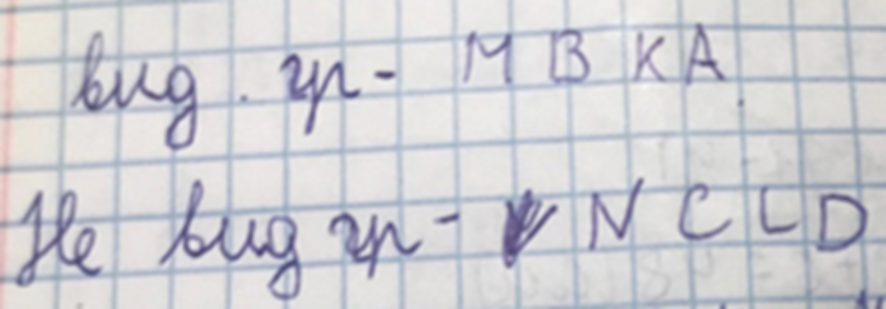 вид. гр- М В К А
Не вид гр- N C L D